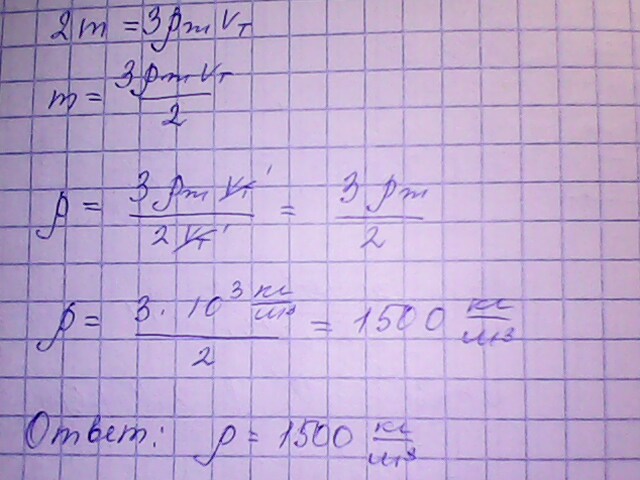 2m = 3ρm Vт
m = 3ρm Vт / 2
ρ = 3 ρm Vт / 2 Vт = 3 ρm / 2
ρ = 3 · 10³ кг/м³ / 2 = 1500 кг/м³
Ответ: ρ = 1500 кг/м³